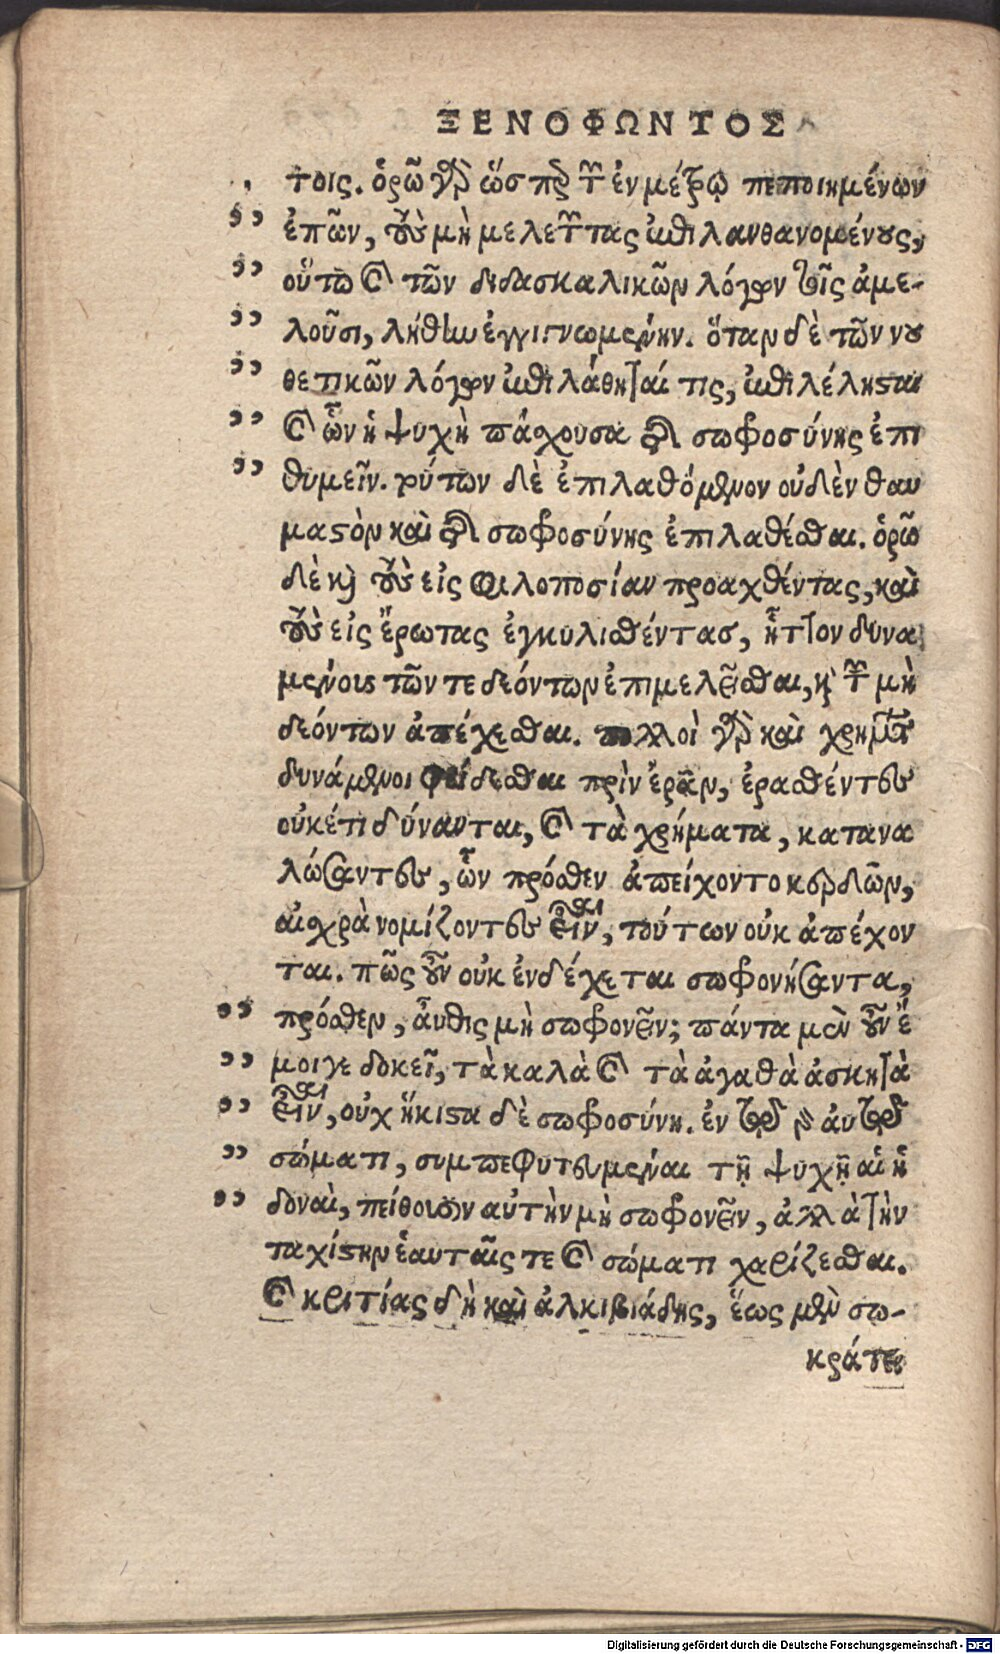 ΞΕΝΟΦΩΝΤΟΣ
τοις. ὁρῶ γὰρ ὥσπερ τῶν ἐν μέτρῳ πεποιημένων
ἐπῶν, τοὺς μὴ μελετῶντας ἐπιλανθανομένους,
οὕτω καὶ τῶν διδασκαλικῶν λόγων τοῖς ἀμε-
λοῦσι, λήθην ἐγγιγνομένην. ὅταν δὲ τῶν νου
θετικῶν λόγων ἐπιλάθηταί τις, ἐπιλέλησται
καὶ ὧν ἡ ψυχὴ πάσχουσα τῆς σωφροσύνης ἐπι
θυμεῖν. τούτων δὲ ἐπιλαθόμενον οὐδὲν θαυ
μαστὸν καὶ τῆς σωφροσύνης ἐπιλαθέσθαι. ὁρῶ
δὲ καὶ τοὺς εἰς φιλοποσίαν προαχθέντας, καὶ
τοὺς εἰς ἔρωτας ἐγκυλισθέντας, ἧττον δυνα
μένους τῶν τε δεόντων ἐπιμελεῖσθαι, καὶ τῶν μὴ
δεόντων ἀπέχεσθαι. πολλοὶ γὰρ καὶ χρημάτων
δυνάμενοι φείδεσθαι πρὶν ἐρᾶν, ἐρασθέντες
οὐκέτι δύνανται, καὶ τὰ χρήματα, κατανα
λώσαντες, ὧν πρόσθεν ἀπείχοντο κερδῶν,
αἰσχρὰ νομίζοντες εἶναι, τούτων οὐκ ἀπέχον
ται. πῶς οὖν οὐκ ἐνδέχεται σωφρονήσαντα,
πρόσθεν, αὖθις μὴ σωφρονεῖν; πάντα μὲν οὖν ἔ
μοιγε δοκεῖ, τὰ καλὰ καὶ τὰ ἀγαθὰ ἀσκητὰ
εἶναι, οὐχ ἥκιστα δὲ σωφροσύνη. ἐν τῷ γὰρ αὐτῷ
σώματι, συμπεφυτευμέναι τῇ ψυχῇ αἱ ἡ
δοναὶ, πείθουσιν αὐτὴν μὴ σωφρονεῖν, ἀλλὰ τὴν
ταχίστην ἑαυταῖς τε καὶ σώματι χαρίζεσθαι.
καὶ κριτίας δὴ καὶ ἀλκιβιάδης, ἕως μὲν σω-
κράτει
Digitalisierung gefördert durch die Deutsche Forschungsgemeinschaft - DFG